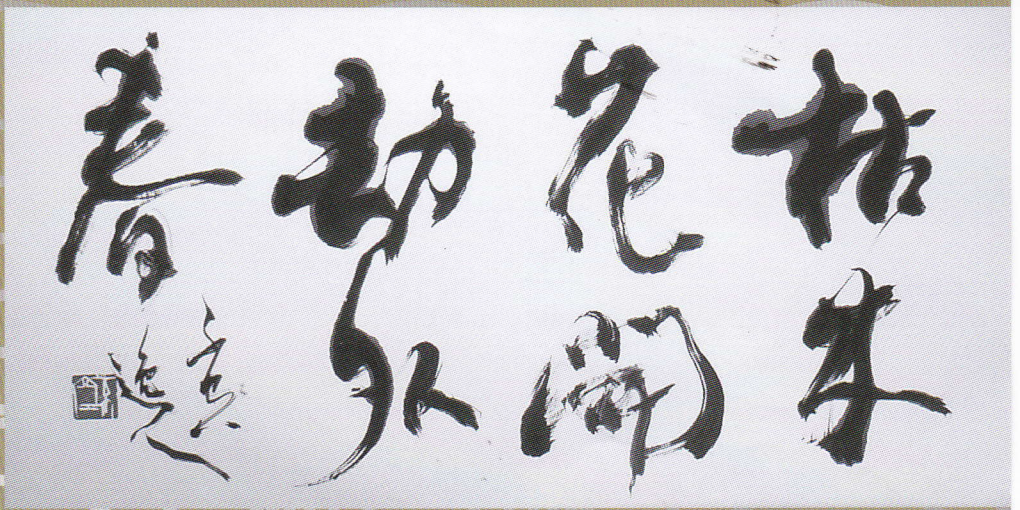 枯木
花開
劫外
春